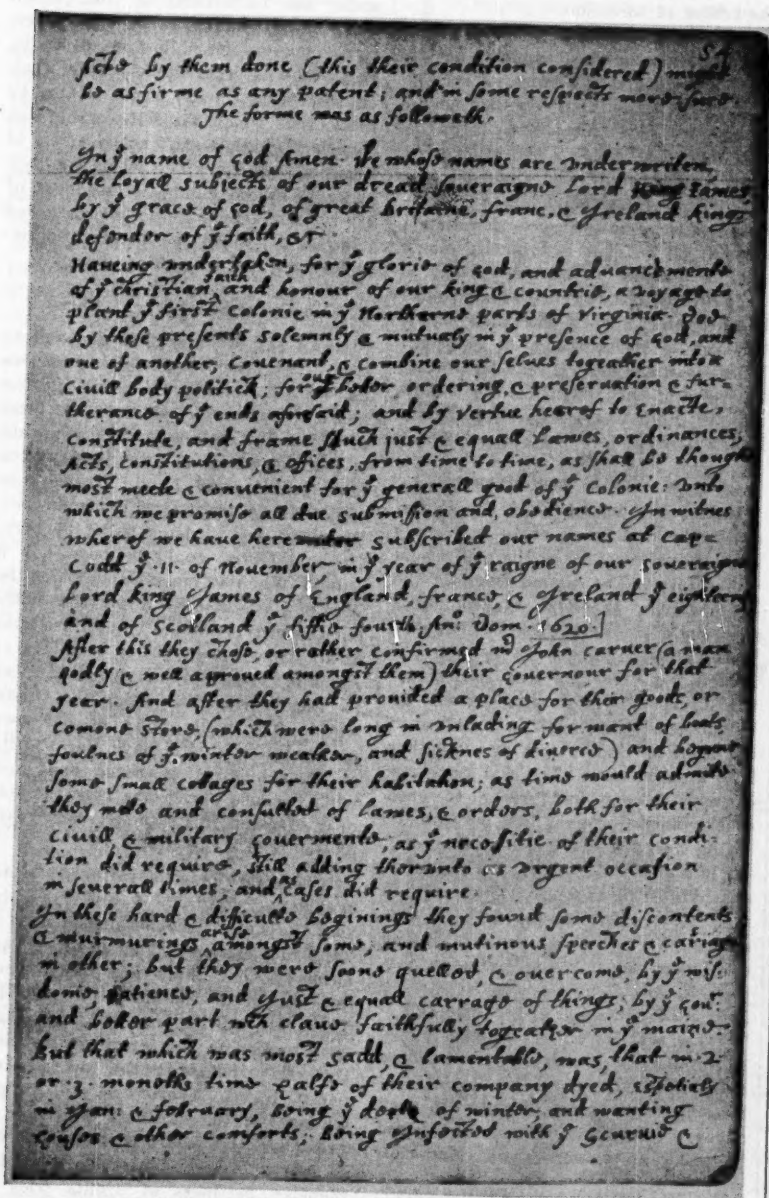 54
Acts by them done (this their condition considered) might
be as firme as any patent; and in some respects more sure.
The forme was as followeth.
In yͤ name of god Amen. We whose names are underwriten,
the loyall subjects of our dread soveraigne Lord King James,
by yͤ grace of god, of great Britaine, franc, & Ireland king,
defender of yͤ faith, &c
Haveing undertaken, for yͤ glorie of god, and advancemente
of yͤ christian faith and honour of our king & countrie, a voyage to
plant yͤ first colonie in yͤ Northerne parts of Virginia. Doe
by these presents solemnly & mutualy in yͤ presence of god, and
one of another, covenant, & combine our selves togeather into a
Civill body politick; for our better ordering, & preservation & fur=
therance of yͤ ends aforesaid; and by vertue hearof to Enacte,
constitute, and frame such just & equall lawes, ordinances,
Acts, constitutions, & offices, from time to time, as shall be thought
most meete & convenient for yͤ generall good of yͤ colonie: unto
which we promise all due submission and obedience. In witnes
wherof we have hereunder subscribed our names at Cap=
Codd yͤ .11. of November, in yͤ year of yͤ raigne of our soveraigne
Lord king James of England, france, & Ireland yͤ eighteenth
and of Scotland yͤ fiftie fourth. Anͦ: Dom. 1620.
After this they chose, or rather confirmed mͬ John carver (a man
godly & well aproved amongst them) their governour for that
year. And after they had provided a place for their goods, or
comone store, (which were long in unlading for want of boats,
foulnes of yͤ winter weather, and sicknes of diverce) and begune
some small cottages for their habitation; as time would admitte
they mette and consulted of lawes, & orders, both for their
civill, & military govermente, as yͤ necessitie of their condi-
tion did require, still adding therunto as urgent occasion
in severall times, and as cases did require.
In these hard & difficulte beginings they found some discontents
& murmurings arise amongst some, and mutinous speeches & cariags
in other; but they were soone quelled, & overcome, by yͤ wis-
dome, patience, and just & equall carrage of things, by yͤ govͬ:
and better part wͨʰ clave faithfully togeather in yͤ maine.
But that which was most sadd, & lamentable, was, that in .2.
or .3. moneths time halfe of their company dyed, espetialy
in Jan: & february, being yͤ depth of winter, and wanting
houses & other comforts; being Infected with yͤ Scurvie &